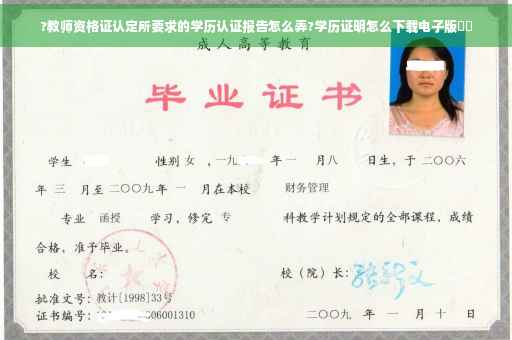 ?教师资格证认定所要求的学历认证报告怎么弄?学历证明怎么下载电子版
成人高等教育
毕业证书
学生 性别 女 ，一九 年 一 月八 日生，于 二〇〇六
年 三 月至 二〇〇九 年 一 月在本校 财务管理
专业 函授 学习，修完 专 科教学计划规定的全部课程，成绩
合格，准予毕业。
校 名： 校（院）长：
批准文号：教计[1998]33号
证书编号： 06001310 二〇〇九 年 一 月 十 日